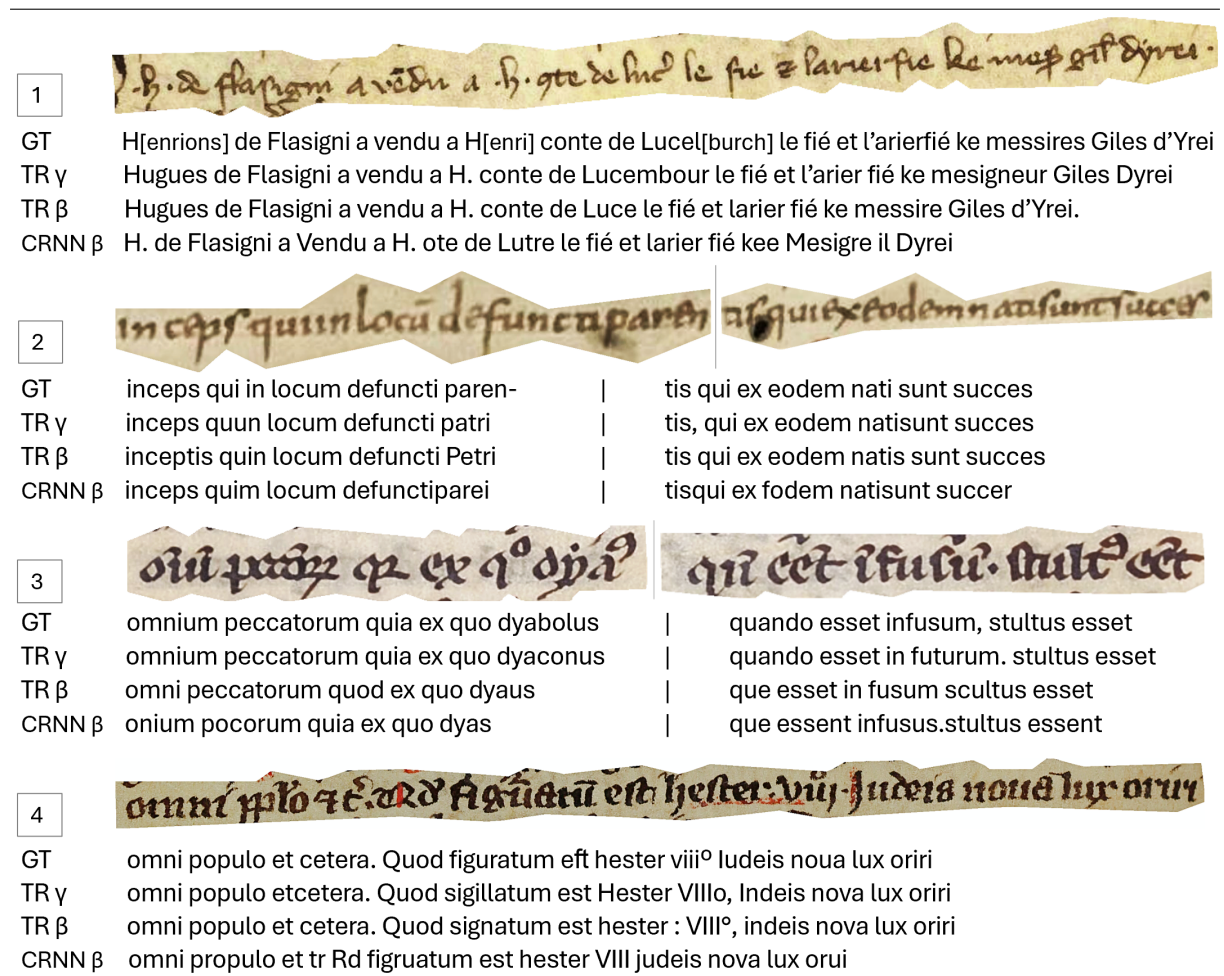 .h. de flasigni a vēdu a .h. 9te de luc le fie ⁊ larier fie ke gil dyrei.
1
GT H[enrions] de Flasigni a vendu a H[enri] conte de Lucel[burch] le fié et l’arierfié ke messires Giles d’Yrei
TR γ Hugues de Flasigni a vendu a H. conte de Lucembour le fié et l’arier fié ke mesigneur Giles Dyrei
TR β Hugues de Flasigni a vendu a H. conte de Luce le fié et larier fié ke messire Giles d’Yrei.
CRNN β H. de Flasigni a Vendu a H. ote de Lutre le fié et larier fié kee Mesigre il Dyrei
in ceps qui in locū defuncti paren tis qui ex eodem nati sunt succes
2
GT inceps qui in locum defuncti paren- | tis qui ex eodem nati sunt succes
TR γ inceps quun locum defuncti patri | tis, qui ex eodem natisunt succes
TR β inceptis quin locum defuncti Petri | tis qui ex eodem natis sunt succes
CRNN β inceps quim locum defunctiparei | tisqui ex fodem natisunt succer
ex qº dyaꝰ qn̄ eēt īfusū. stultꝰ eēt
3
GT omnium peccatorum quia ex quo dyabolus | quando esset infusum, stultus esset
TR γ omnium peccatorum quia ex quo dyaconus | quando esset in futurum. stultus esset
TR β omni peccatorum quod ex quo dyaus | que esset in fusum scultus esset
CRNN β onium pocorum quia ex quo dyas | que essent infusus.stultus essent
omni pplo ⁊ est hester. viij Judeis noua lux oriri
4
GT omni populo et cetera. Quod figuratum eft hester viiiº Iudeis noua lux oriri
TR γ omni populo etcetera. Quod sigillatum est Hester VIIIo, Indeis nova lux oriri
TR β omni populo et cetera. Quod signatum est hester : VIII°, indeis nova lux oriri
CRNN β omni propulo et tr Rd figruatum est hester VIII judeis nova lux orui